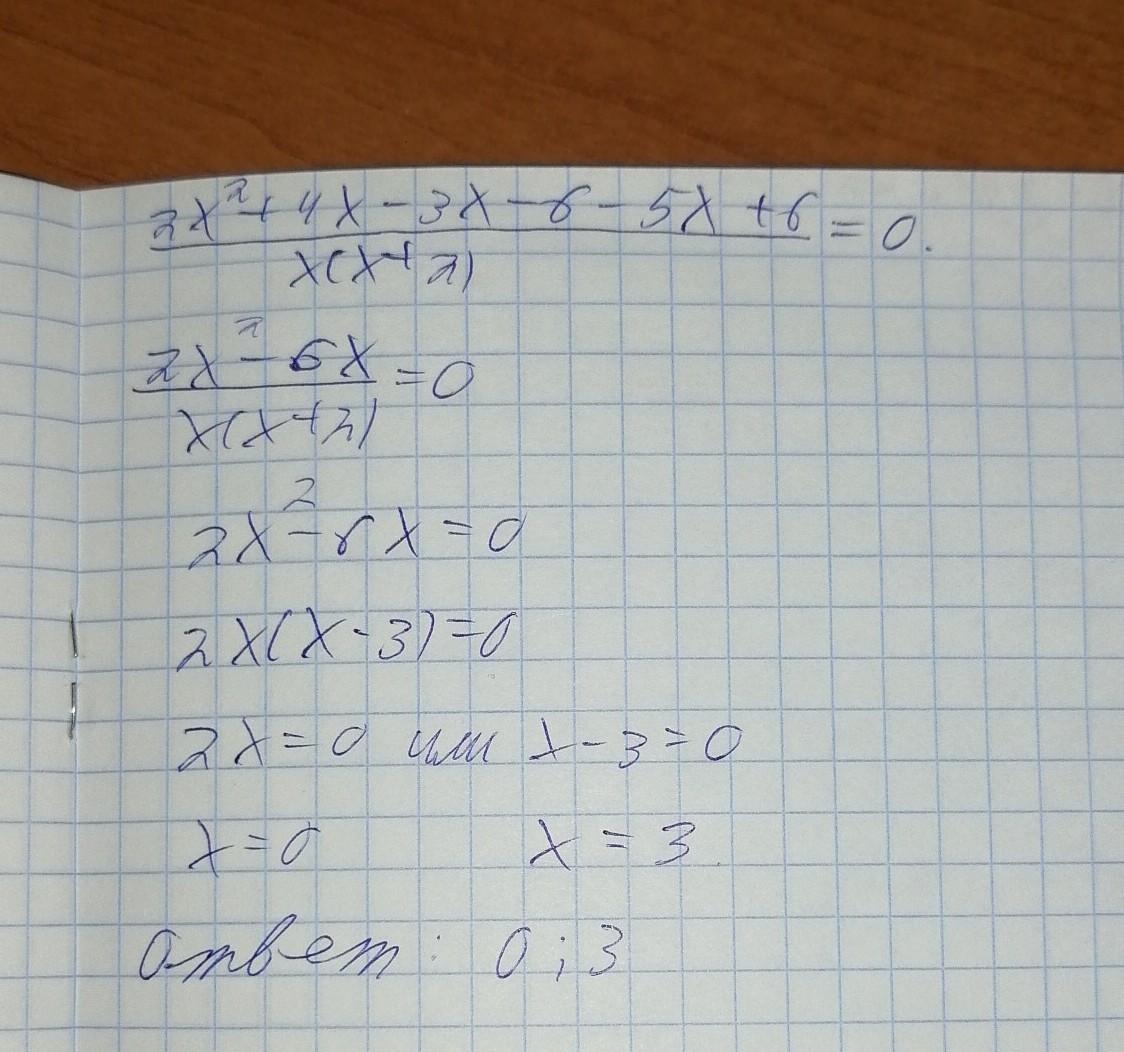 2x²+4x-3x-6-5x+6
x(x+2) = 0.
2x²-6x
x(x+2) = 0
2x²-6x=0
2x(x-3)=0
2x=0 или x-3=0
x=0 x=3
ответ: 0;3